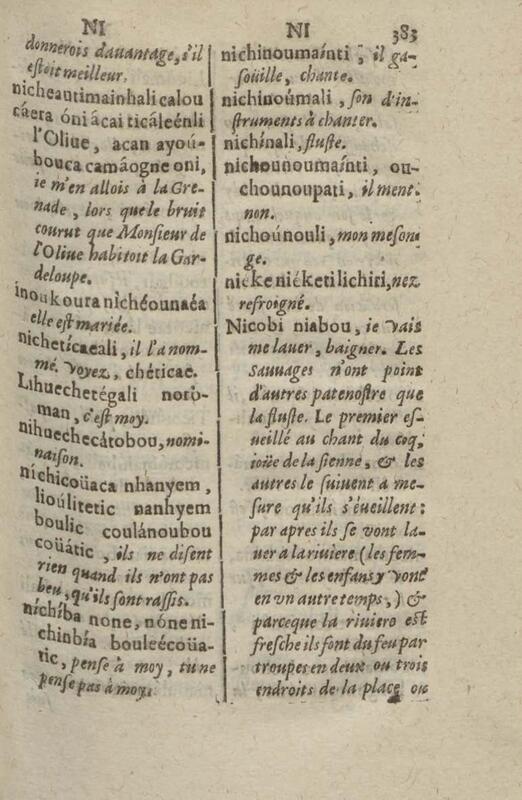 NI
donnerois dauantage, s'il
estoit meilleur.
nicheautimainhali calou
cáera óni ácai ticáleénli
l'Oliue, acan ayoú-
bouca camâogne oni,
ie m'en allois à la Gre-
nade, lors que le bruit
courut que Monsieur de
l'Oliue habitoit la Gar-
deloupe.
inoukoura nichéounaéa
elle est mariée.
nicheticaeali, il l'a nom-
mé. voyez, chéticae.
Lihuechetégali noro-
man, c'est moy.
nihuechecátobou, nomi-
naison.
nichicoüaca nhanyem,
lioúlitetic nanhyem
boulic coulánoubou
coüátic, ils ne disent
rien quand ils n'ont pas
beu, qu'ils sont rassis.
nichíba none, nóne ni-
chinbía bouleécoüa-
tic, pense à moy, tu ne
pense pas à moy.
NI 383
nichinoumaínti, il ga-
soüille, chante.
nichinoúmali, son d'in-
struments à chanter.
nichínali, fluste.
nichounoumaínti, ou-
chounoupati, il ment.
non.
nichoúnouli, mon meson-
ge.
nieke niéketilichiri, nez
refroigné.
Nicobi niabou, ie vais
me lauer, baigner. Les
sauuages n'ont point
d'autres patenostre que
la fluste. Le premier es-
ueillé au chant du coq,
ioüe de la sienne, & les
autres le suiuent à me-
sure qu'ils s'éueillent:
par apres ils se vont la-
uer à la riuiere (les fem-
mes & les enfans y vont
en vn autre temps,) &
parceque la riuiero est
fresche ils font du feu par
troupes en deux ou trois
endroits de la place ou